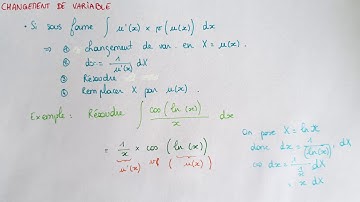 CHANGEMENT DE VARIABLE
• Si sous forme ∫ u'(x) × v(u(x)) dx
⇒ ① changement de var. en X = u(x).
② dx = 1/u'(x) dX
③ Résoudre
④ Remplacer X par u(x).
Exemple : Résoudre ∫ cos(ln(x))/x dx
= 1/x × cos (ln(x))
u'(x) v( u(x) )
On pose X = ln x
donc dx = 1/(ln(x))' dX
⇔ dx = 1/(1/x) dX
= x dX